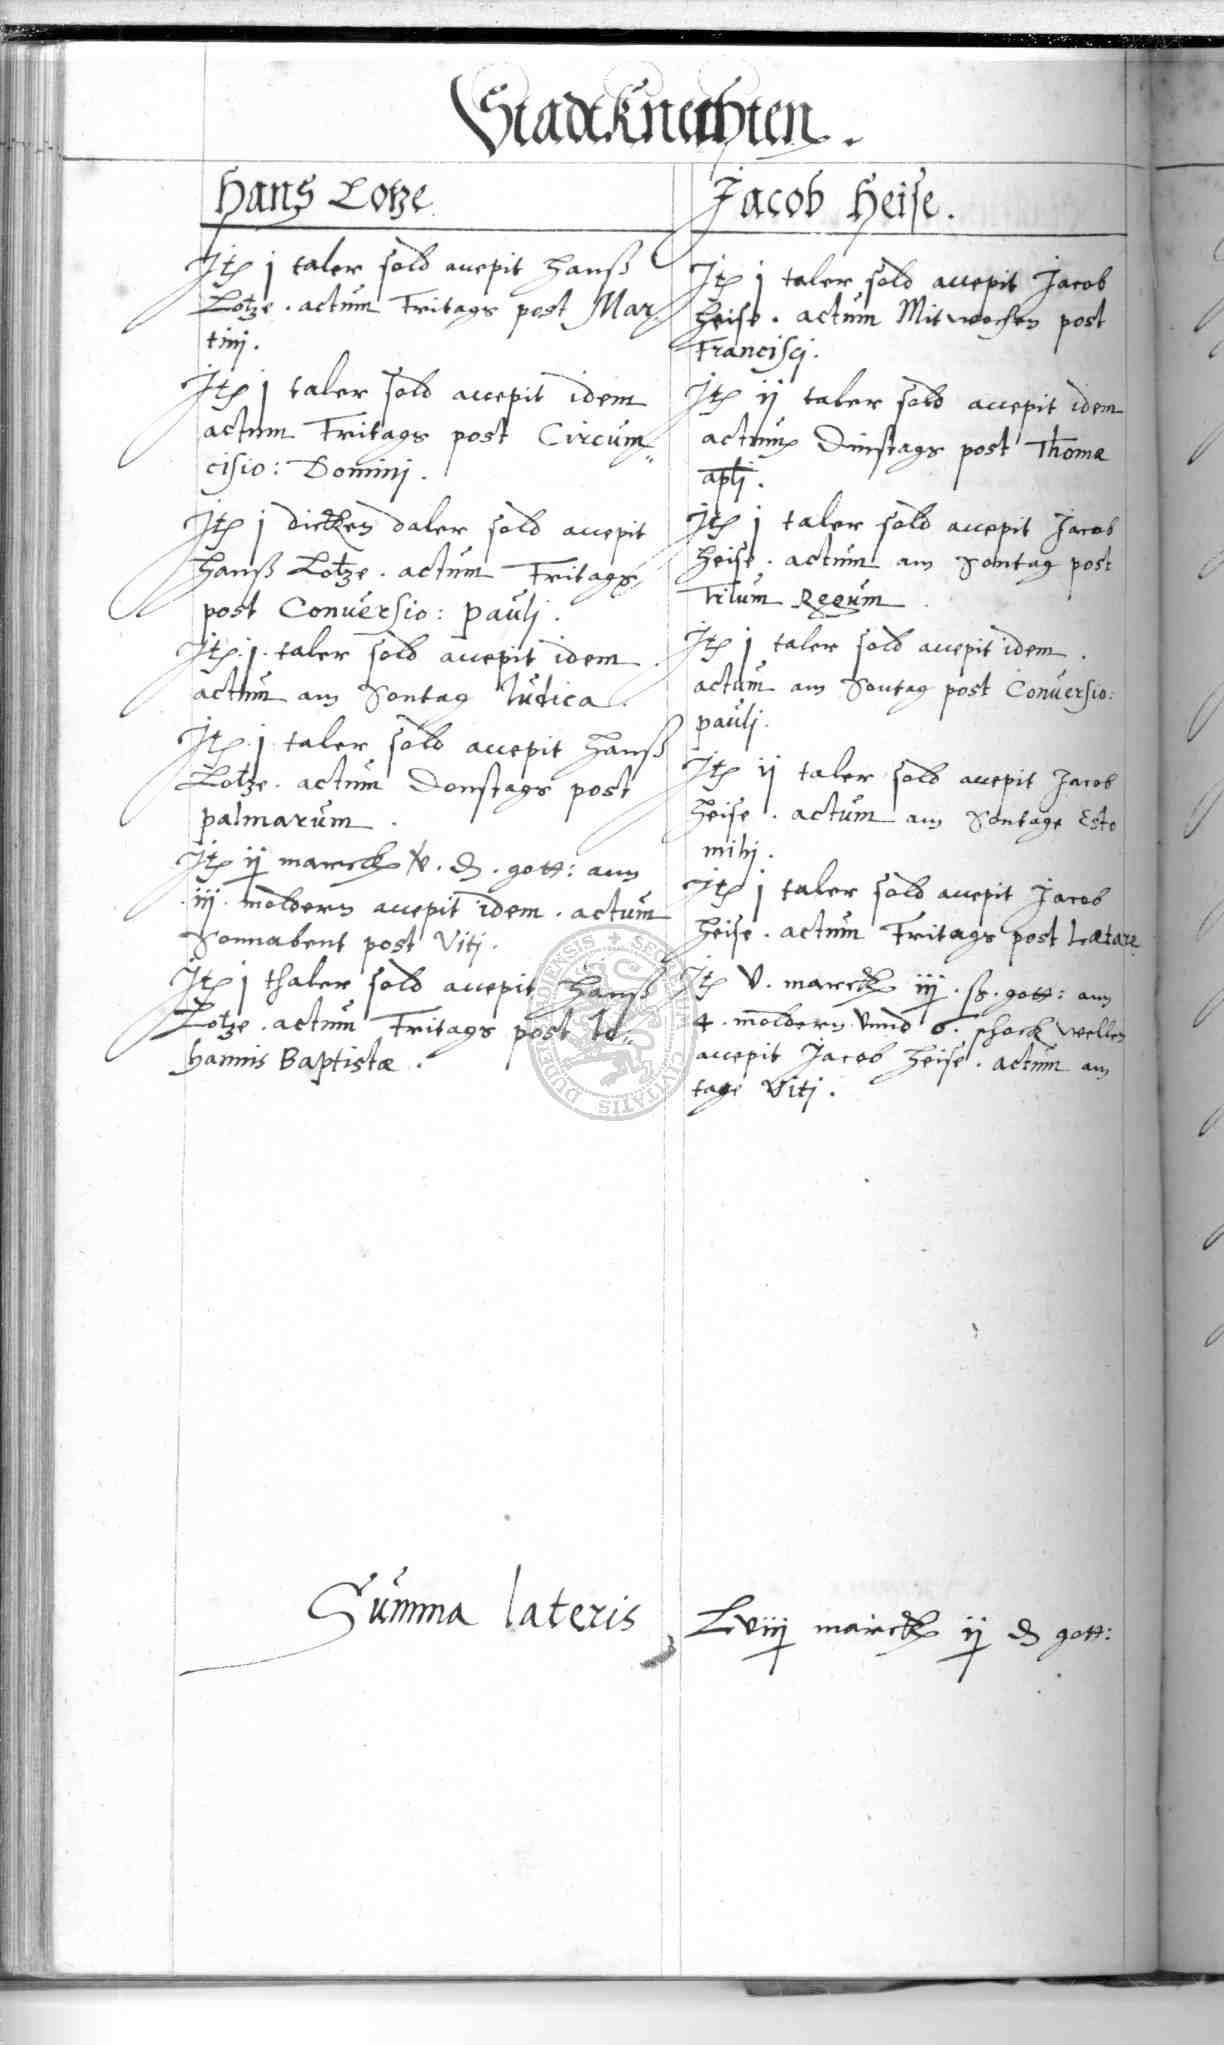 Stadtknechten.
Hans Lotze
Jtem j taler sold accepit Hanß
Lotze. actum Fritags post Mar
tinj.
Jtem j taler sold accepit idem
actum Fritags post Circum„
cisio: Dominj.
Jtem j dicken daler sold accepit
Hanß Lotze. actum Fritags
post Conuersio: paulj.
Jtem .j. taler sold accepit idem.
actum am Sontag Iudica.
Jtem .j. taler sold accepit Hanß
Lotze. actum Donstags post
palmarum.
Jtem ij marck v. d. gott: ann
.iij. moldern accepit idem. actum
Sonnabent post Vitj.
Jtem j thaler sold accepit Hanß
Lotze. actum Fritags post Io„
hannis Baptistæ.
Jacob Heise.
Jtem j taler sold accepit Jacob
Heise. actum Mitwochen post
Francisci.
Jtem ij taler sold accepit idem
actum Dinstags post Thomæ
aplj.
Jtem j taler sold accepit Jacob
Heise. actum am Sontag post
Trium Regum.
Jtem j taler sold accepit idem.
actum am Sontag post Conuersio:
paulj.
Jtem ij taler sold accepit Jacob
Heise. actum am Sontage Esto
mihj.
Jtem j taler sold accepit Jacob
Heise. actum Fritags post Lætare
Jtem v. marck iij. ß. gott: ann
4. moldern vnnd 6. schock wellen
accepit Jacob Heise. actum am
tage Vitj.
SECRETUM CIVITATIS DUDERSTADENSIS
Summa lateris Lviij marck ij d gott: